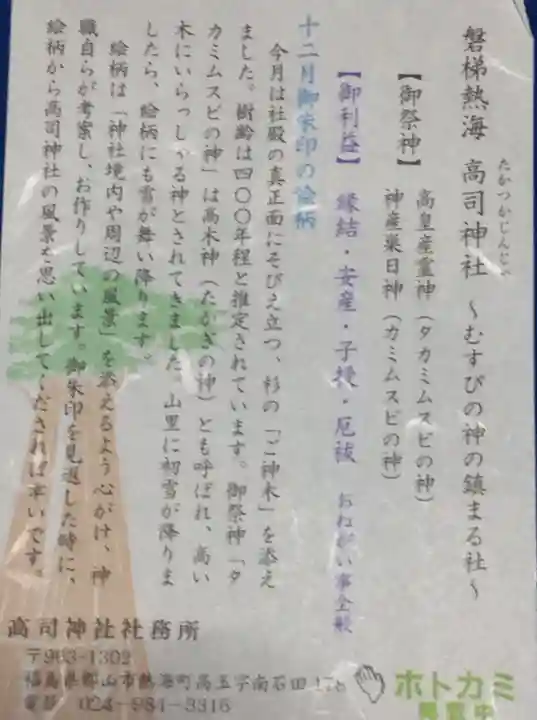 磐梯熱海 高司神社 ～むすびの神の鎮まる社～
たかつかじんじゃ
【御祭神】 高皇産霊神（タカミムスビの神）
神産巣日神（カミムスビの神）
【御利益】 縁結・安産・子授・厄祓 おねがい事全般
十二月御朱印の絵柄
今月は社殿の真正面にそびえ立つ、杉の「ご神木」を添え
ました。樹齢は四〇〇年程と推定されています。御祭神「タ
カミムスビの神」は高木神（たかぎの神）とも呼ばれ、高い
木にいらっしゃる神とされてきました。山里に初雪が降りま
したら、絵柄にも雪が舞い降ります。
絵柄は「神社境内や周辺の風景」を添えるよう心がけ、神
職自らが考案し、お作りしています。御朱印を見返した時に、
絵柄から高司神社の風景を思い出してくだされば幸いです。
高司神社社務所
〒963-1302
福島県郡山市熱海町高玉字南石田178
電話 024-984-3316
ホトカミ